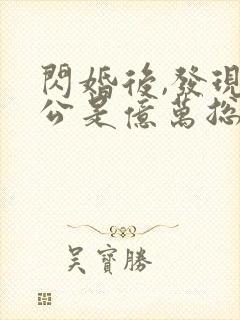 閃婚後,發現
公是億萬總
吳寶勝